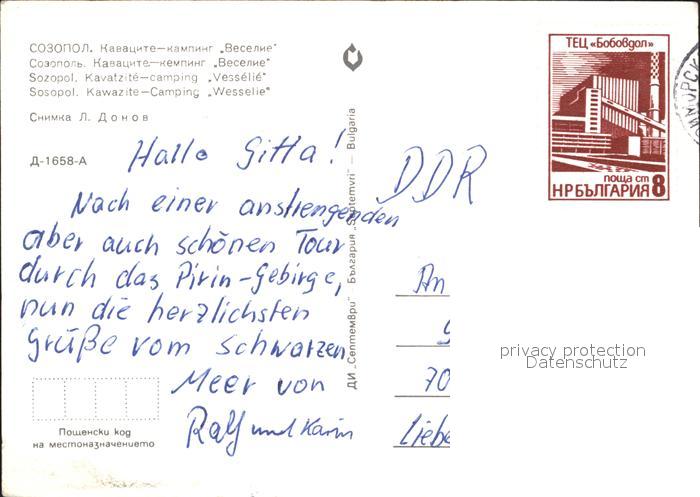 СОЗОПОЛ. Каваците—кампинг „Веселие"
Созополь. Каваците—кемпинг „Веселие"
Sozopol. Kavatzité—camping „Vessélié"
Sosopol. Kawazite—Camping „Wesselie"
Снимка Л. Донов
Д-1658-А
Hallo Gitta!
Nach einer anstrengenden
aber auch schönen Tour
durch das Pirin-Gebirge,
nun die herzlichsten
Grüße vom schwarzen
Meer von
Ralf und Karin
Пощенски код
на местоназначението
ДИ „Септември" България „Septemvri" — Bulgaria
ТЕЦ «Бобовдол»
поща ст
НРБЪЛГАРИЯ 8
DDR
An
70
Liebe
privacy protection
Datenschutz